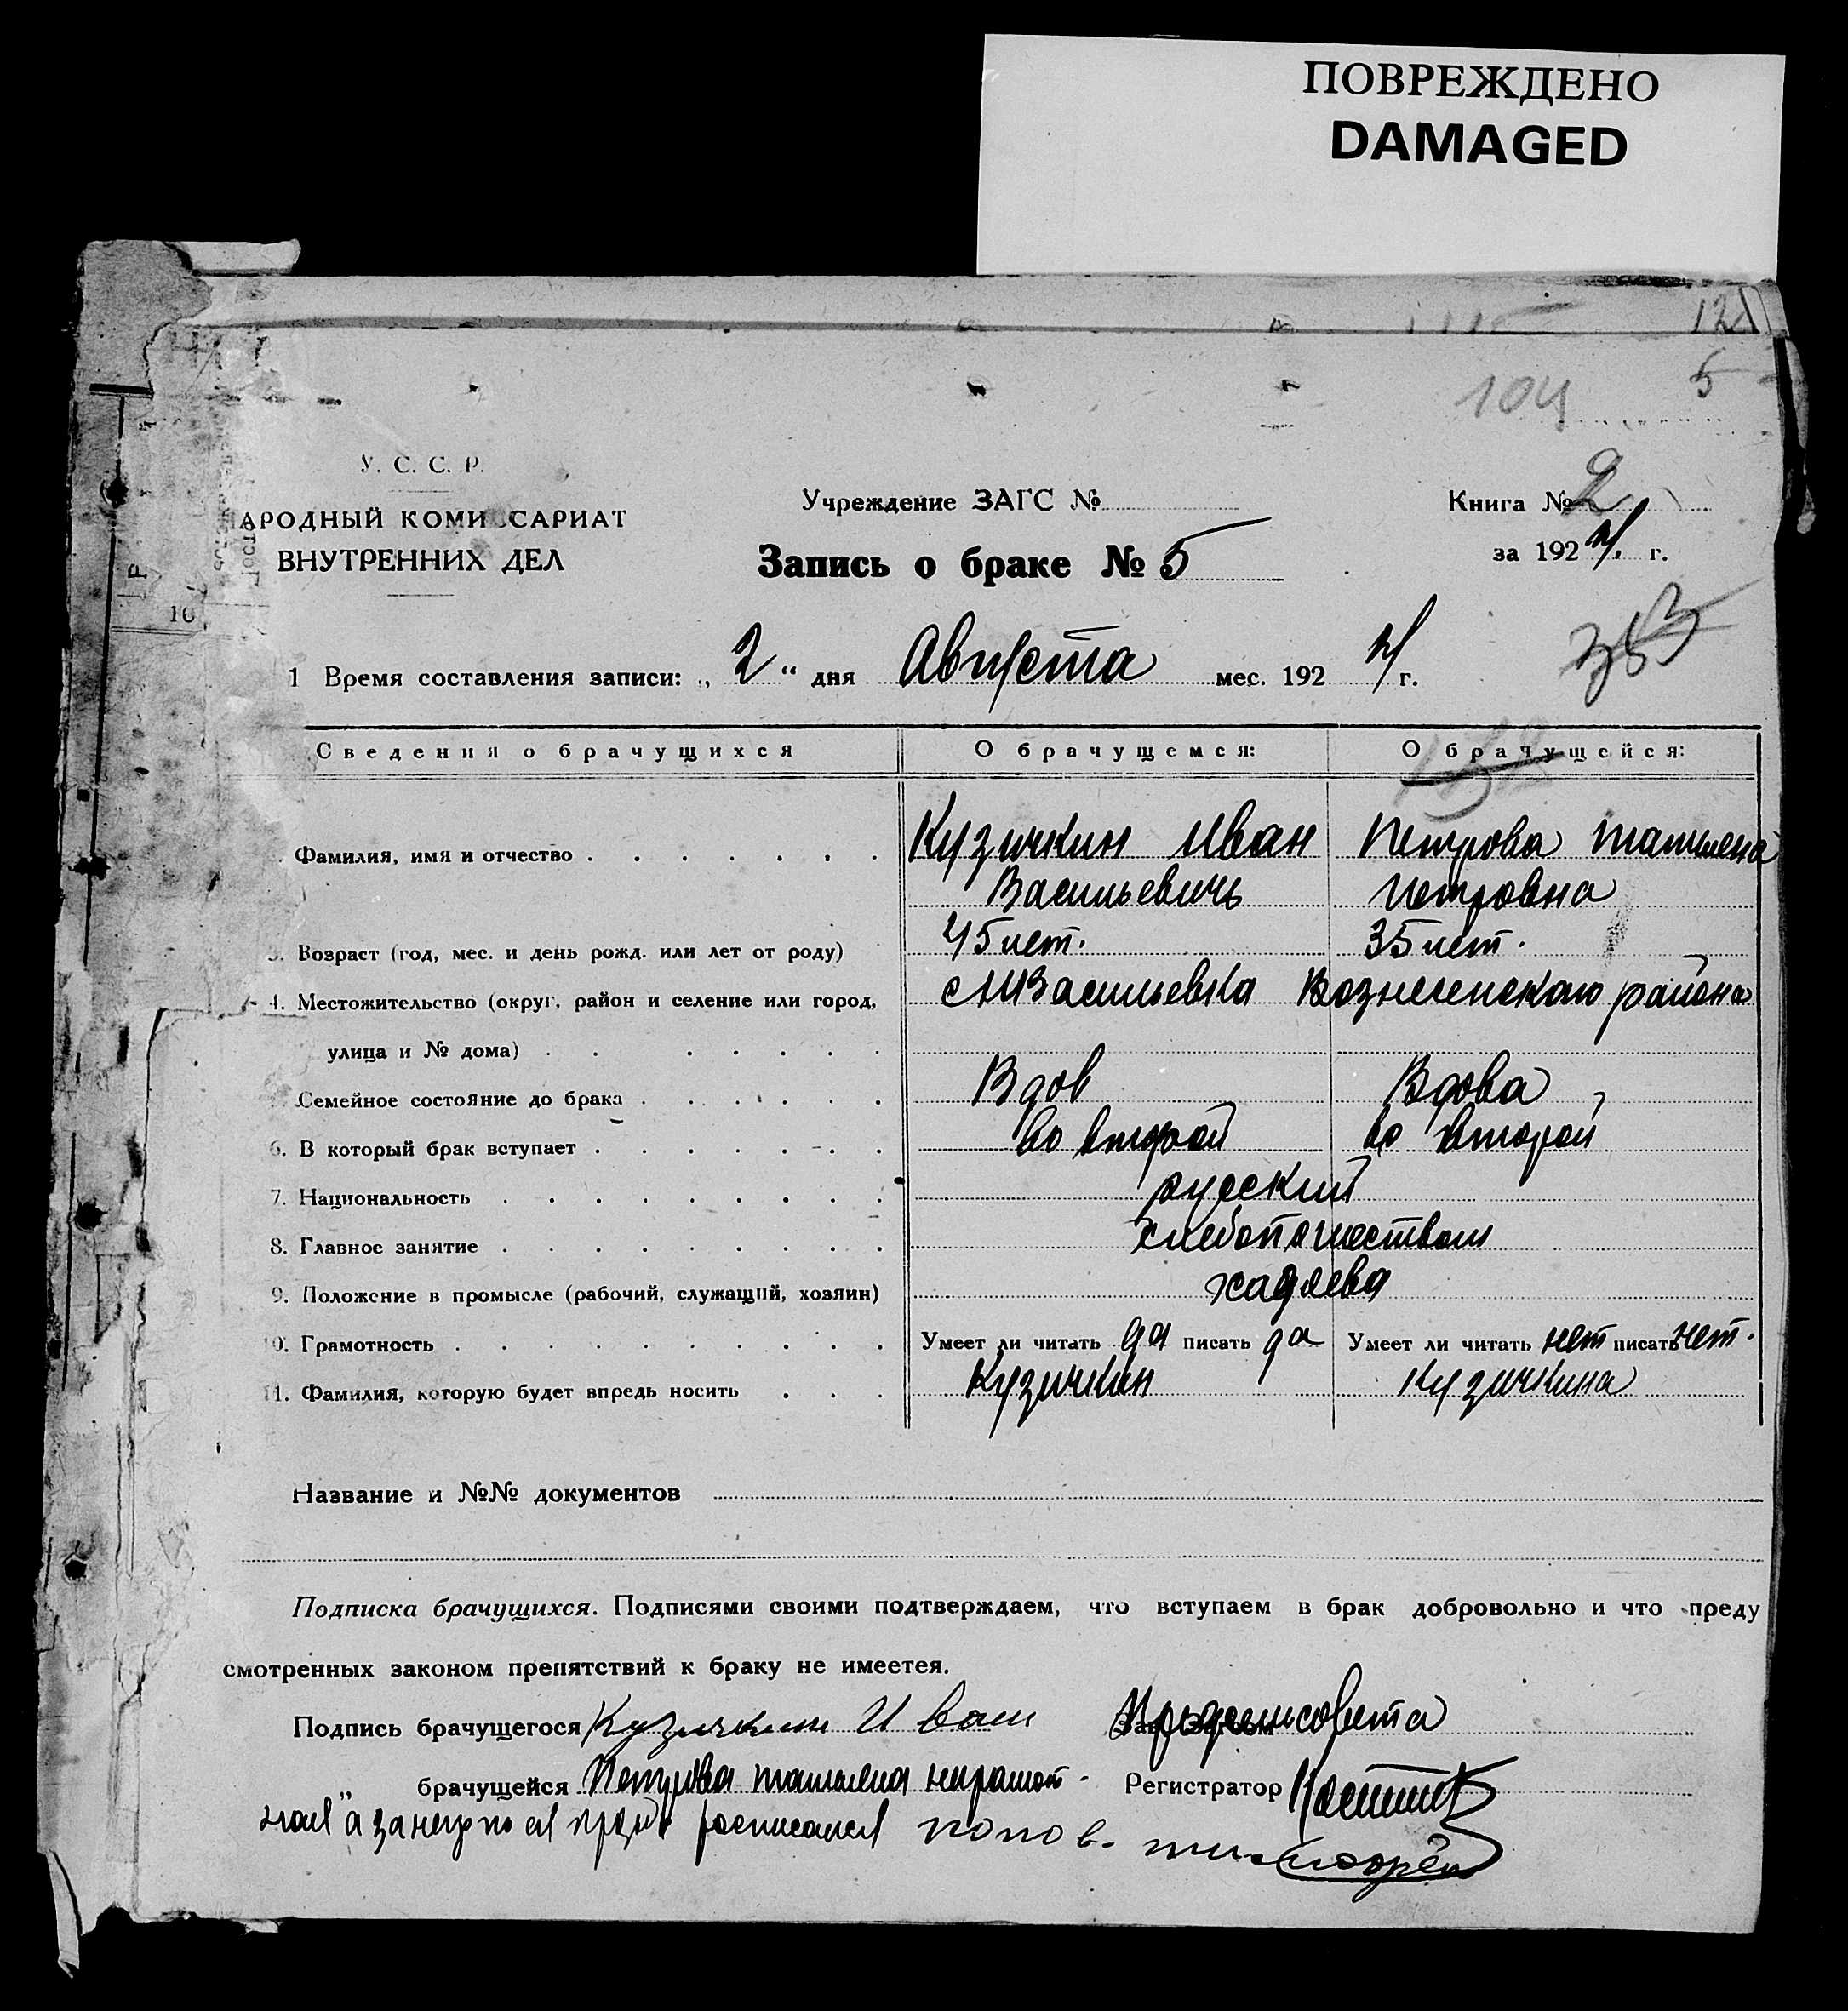 ПОВРЕЖДЕНО
DAMAGED
121
5
104
У. С. С. Р.
АРОДНЫЙ КОМИССАРИАТ
ВНУТРЕННИХ ДЕЛ
Учреждение ЗАГС №
Книга № 2
за 1924 г.
Запись о браке № 5
16
353
1 Время составления записи: „ 2 " дня Августа мес. 1924 г.
Сведения о брачущихся О брачущемся: О брачущейся:
Фамилия, имя и отчество Кузичкин Иван Петрова Татьяна
Васильевичь Петровна
3. Возраст (год, мес. и день рожд. или лет от роду) 45 лет. 35 лет.
4. Местожительство (округ, район и селение или город, Васильевка Вознесенского района
улица и № дома)
Семейное состояние до брака Вдов Вдова
6. В который брак вступает во второй во второй
7. Национальность русский
8. Главное занятие хлебопашеством
9. Положение в промысле (рабочий, служащий, хозяин)
10. Грамотность Умеет ли читать да писать да Умеет ли читать нет писать нет.
11. Фамилия, которую будет впредь носить Кузичкин Кузичкина
Название и №№ документов
Подписка брачущихся. Подписями своими подтверждаем, что вступаем в брак добровольно и что преду
смотренных законом препятствий к браку не имеетея.
Подпись брачущегося Кузичкин Иван
„ брачущейся Петрова Татьяна Регистратор
расписался Попов